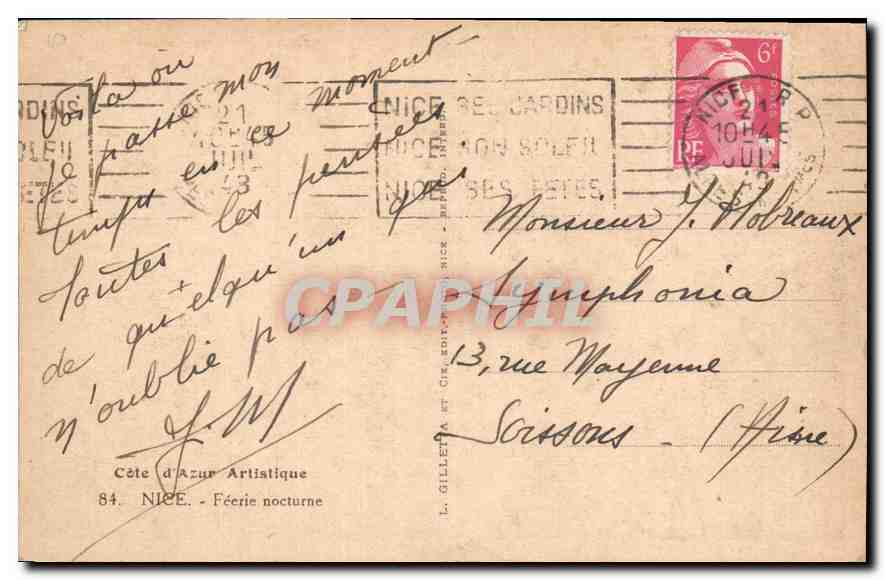 Voilà où
je passe mon
temps en ce moment
toutes les pensées
de quelqu'un qui
n'oublie pas
J. M
Côte d'Azur Artistique
84. NICE. - Féerie nocturne
L. GILLETTA ET CIE, EDIT. NICE - REPROD. INTERD.
NICE SES JARDINS
NICE SON SOLEIL
NICE SES FETES
21
JUIL
NICE R.P.
21
10H45
JUIL
6F
RF
Monsieur J. Hobreaux
Symphonia
13, rue Mayenne
Soissons - (Aisne)
CPAPHIL